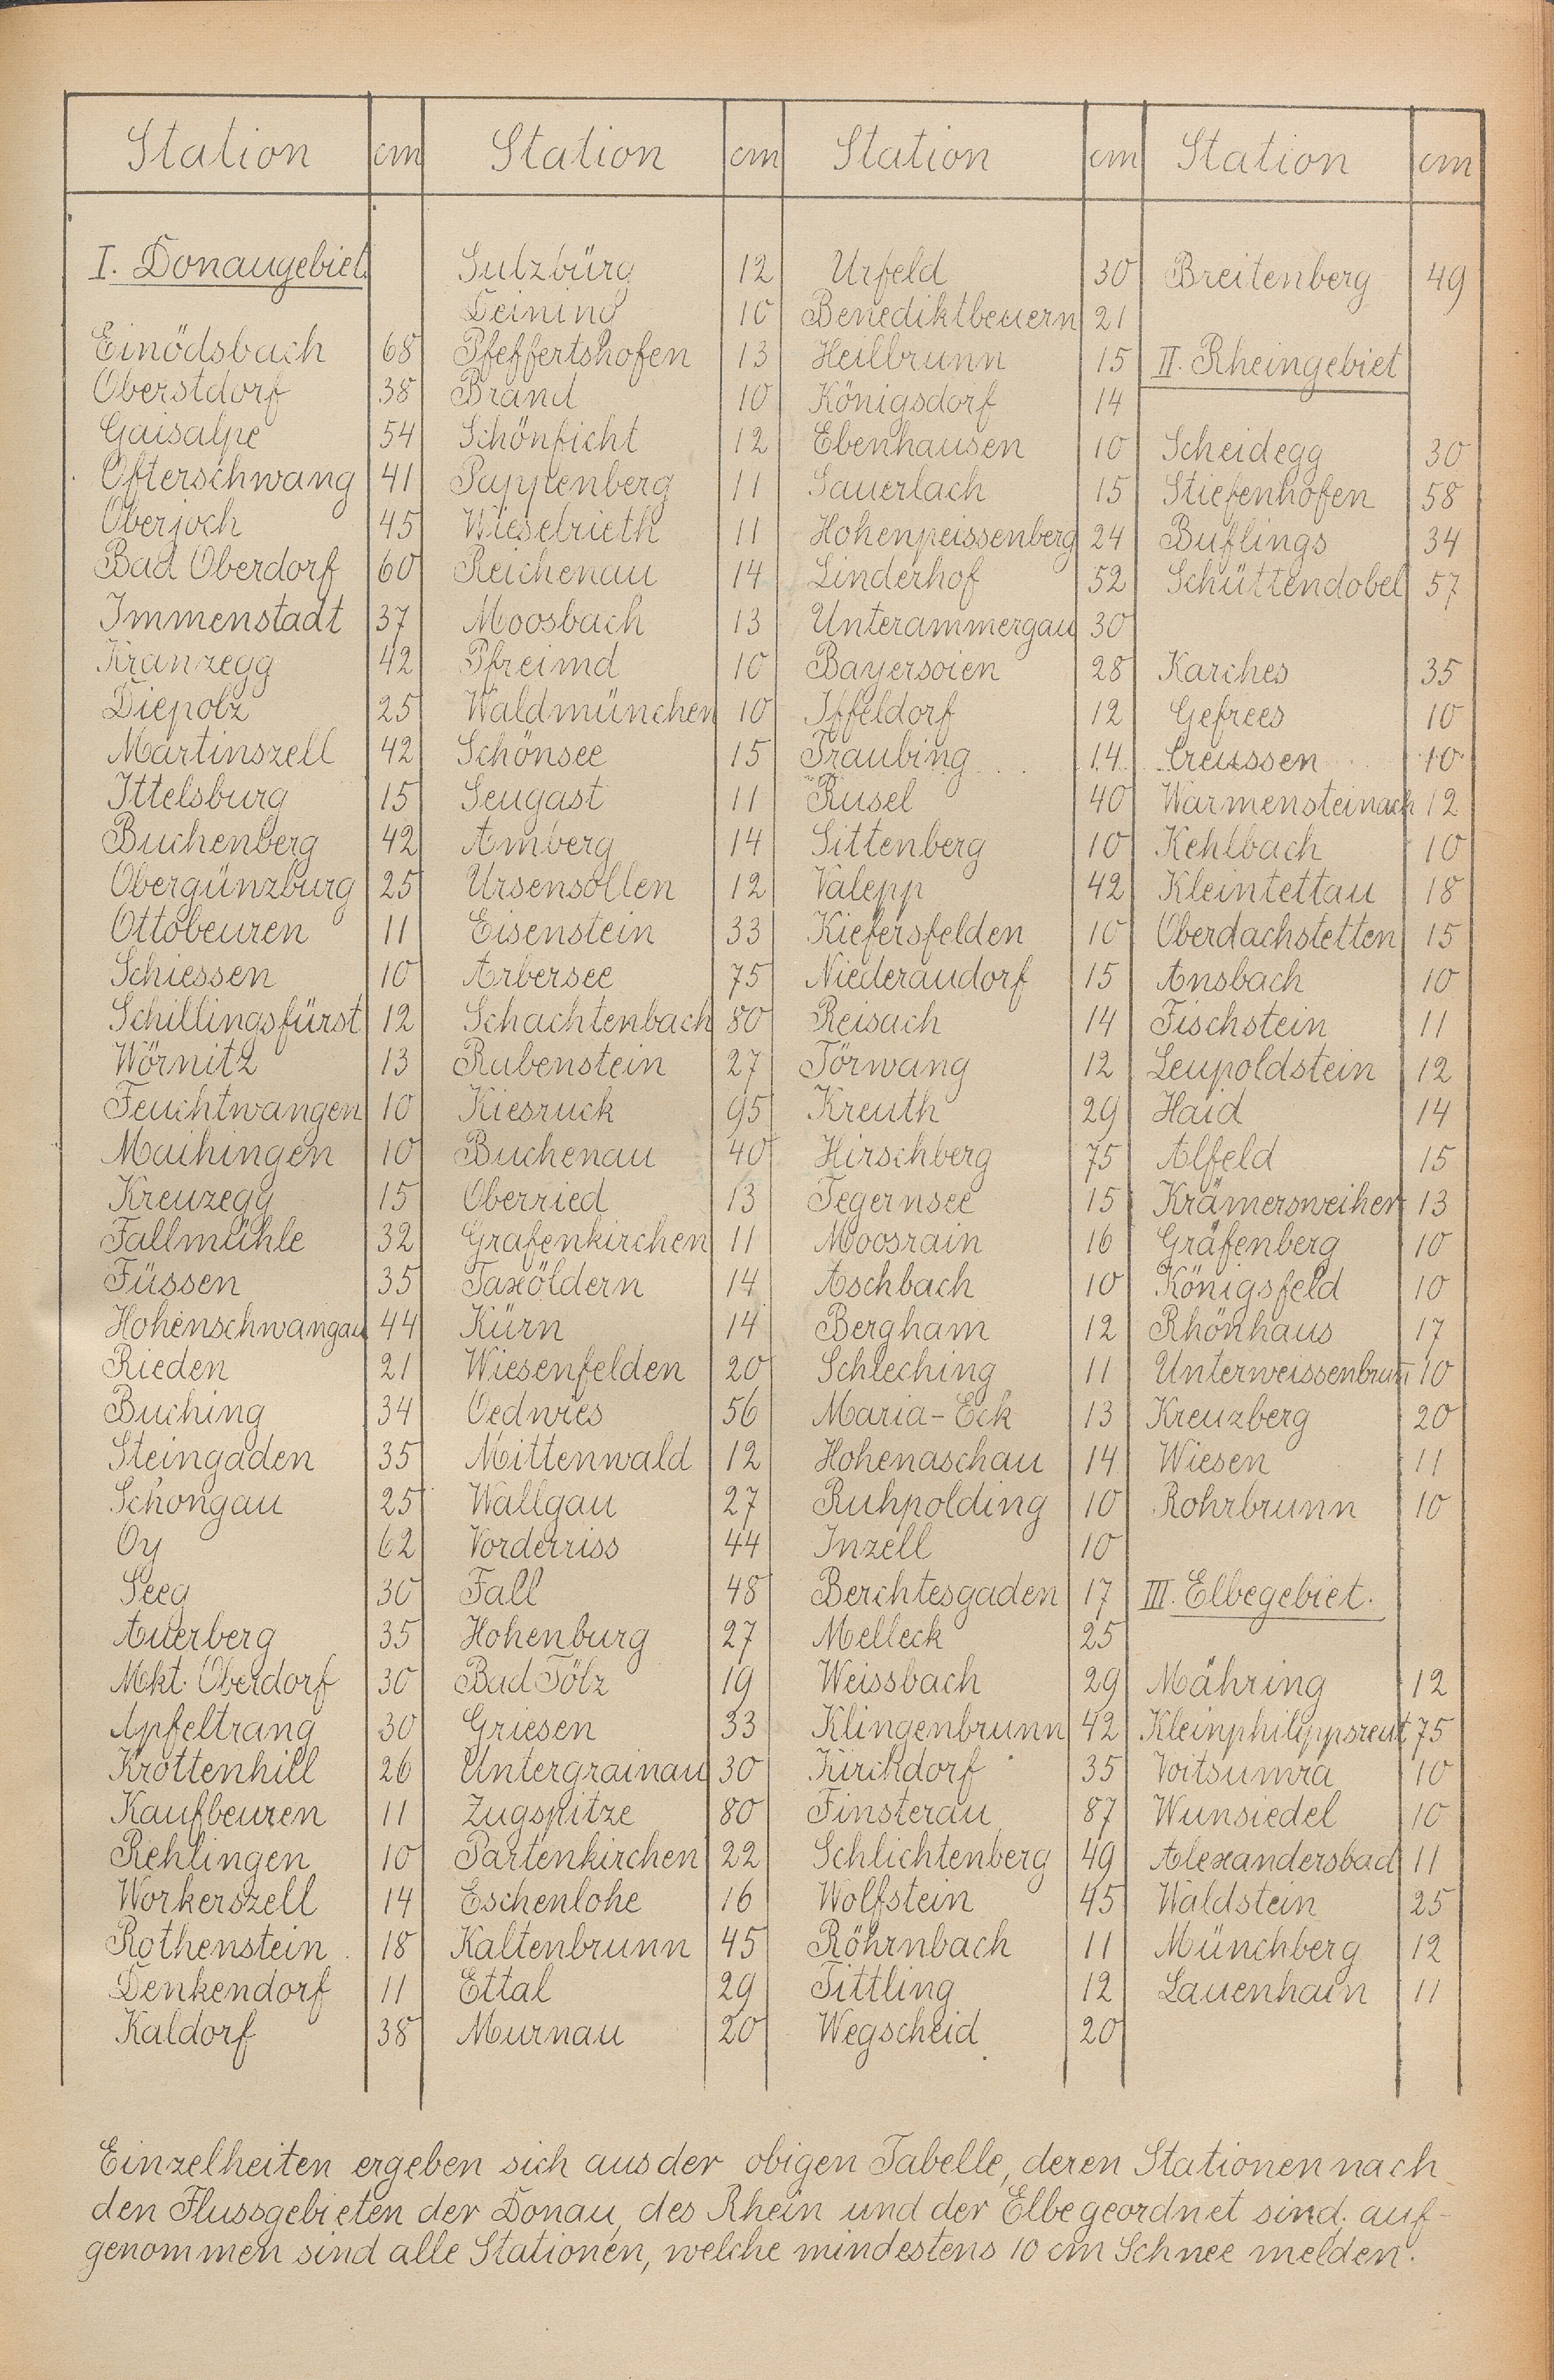 Station cm Station cm Station cm Station cm
I. Donaugebiet. Sulzbürg 12 Urfeld 30 Breitenberg 49
Deining 10 Benediktbeuern 21
Einödsbach 68 Pfeffertshofen 13 Heilbrunn 15 II. Rheingebiet
Oberstdorf 38 Brand 10 Königsdorf 14
Gaisalpe 54 Schönficht 12 Ebenhausen 10 Scheidegg 30
Ofterschwang 41 Pappenberg 11 Sauerlach 15 Stiefenhofen 58
Oberjoch 45 Wieselrieth 11 Hohenpeissenberg 24 Buflings 34
Bad Oberdorf 60 Reichenau 14 Linderhof 52 Schüttendobel 57
Immenstadt 37 Moosbach 13 Unterammergau 30
Kranzegg 42 Pfreimd 10 Bayersoien 28 Karches 35
Diepolz 25 Waldmünchen 10 Iffeldorf 12 Gefrees 10
Martinszell 42 Schönsee 15 Traubing 14 Creussen 10
Ittelsburg 15 Seugast 11 Rusel 40 Warmensteinach 12
Buchenberg 42 Amberg 14 Sittenberg 10 Kehlbach 10
Obergünzburg 25 Ursensollen 12 Valepp 42 Kleintettau 18
Ottobeuren 11 Eisenstein 33 Kiefersfelden 10 Oberdachstetten 15
Schiessen 10 Arbersee 75 Niederaudorf 15 Ansbach 10
Schillingsfürst 12 Schachtenbach 80 Reisach 14 Fischstein 11
Wörnitz 13 Rabenstein 27 Törwang 12 Leupoldstein 12
Feuchtwangen 10 Kiesruck 95 Kreuth 29 Haid 14
Maihingen 10 Buchenau 40 Hirschberg 75 Alfeld 15
Kreuzegg 15 Oberried 13 Tegernsee 15 Krämersweiher 13
Fallmühle 32 Grafenkirchen 11 Moosrain 16 Gräfenberg 10
Füssen 35 Taxöldern 14 Aschbach 10 Königsfeld 10
Hohenschwangau 44 Kürn 14 Bergham 12 Rhönhaus 17
Rieden 21 Wiesenfelden 20 Schleching 11 Unterweissenbrunn 10
Buching 34 Oedwies 56 Maria-Eck 13 Kreuzberg 20
Steingaden 35 Mittenwald 12 Hohenaschau 14 Wiesen 11
Schongau 25 Wallgau 27 Ruhpolding 10 Rohrbrunn 10
Oy 62 Vorderriss 44 Inzell 10
Seeg 30 Fall 48 Berchtesgaden 17 III. Elbegebiet.
Auerberg 35 Hohenburg 27 Melleck 25
Mkt. Oberdorf 30 Bad Tölz 19 Weissbach 29 Mähring 12
Apfeltrang 30 Griesen 33 Klingenbrunn 42 Kleinphilippsreut 75
Krottenhill 26 Untergrainau 30 Kirchdorf 35 Voitsumra 10
Kaufbeuren 11 Zugspitze 80 Finsterau 87 Wunsiedel 10
Rehlingen 10 Partenkirchen 22 Schlichtenberg 49 Alexandersbad 11
Workerszell 14 Eschenlohe 16 Wolfstein 45 Waldstein 25
Rothenstein 18 Kaltenbrunn 45 Röhrnbach 11 Münchberg 12
Denkendorf 11 Ettal 29 Tittling 12 Lauenhain 11
Kaldorf 38 Murnau 20 Wegscheid 20
Einzelheiten ergeben sich aus der obigen Tabelle, deren Stationen nach
den Flussgebieten der Donau, des Rhein und der Elbe geordnet sind. auf-
genommen sind alle Stationen, welche mindestens 10 cm Schnee melden.